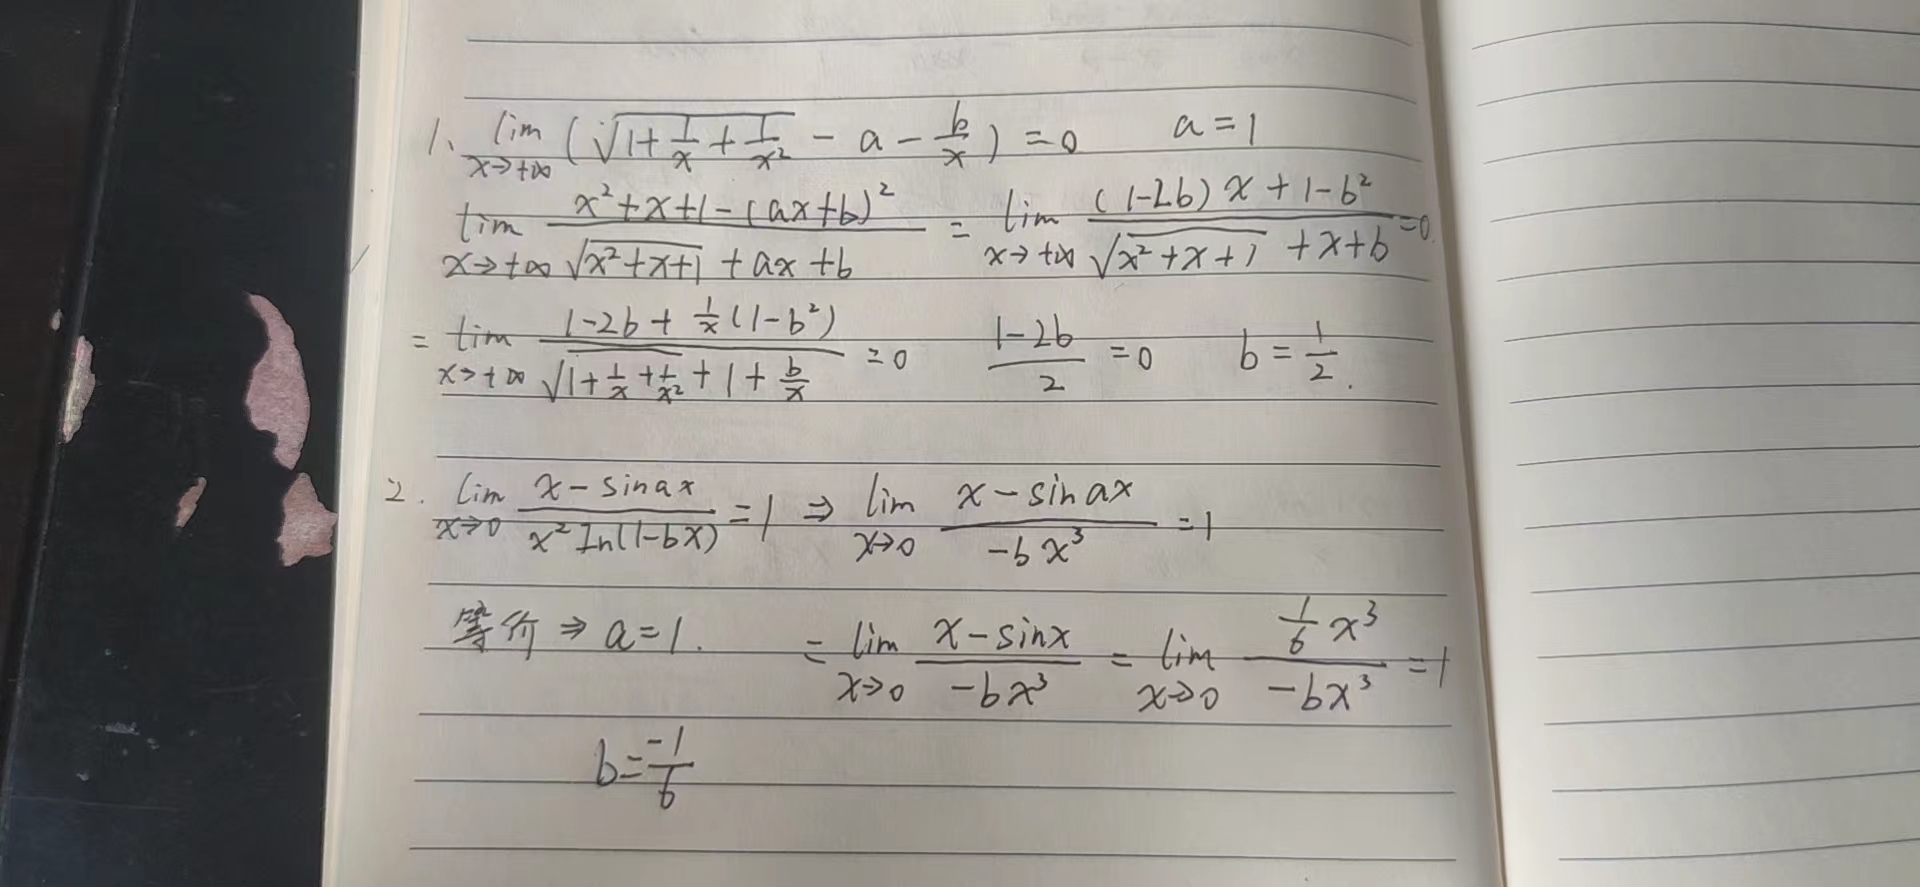 1、 lim x→+∞ (√(1+1/x+1/x²) - a - b/x) = 0  a=1
lim x→+∞ (x²+x+1-(ax+b)²)/(√(x²+x+1) + ax+b) = lim x→+∞ ((1-2b)x+1-b²)/(√(x²+x+1) + x+b) = 0.
= lim x→+∞ (1-2b+1/x(1-b²))/(√(1+1/x+1/x²) + 1 + b/x) = 0  (1-2b)/2 = 0  b = 1/2.
2. lim x→0 (x-sinax)/(x² In(1-bx)) = 1 ⇒ lim x→0 (x-sinax)/(-bx³) = 1
等价 ⇒ a=1.  = lim x→0 (x-sinx)/(-bx³) = lim x→0 (1/6 x³)/(-bx³) = 1
b = -1/6